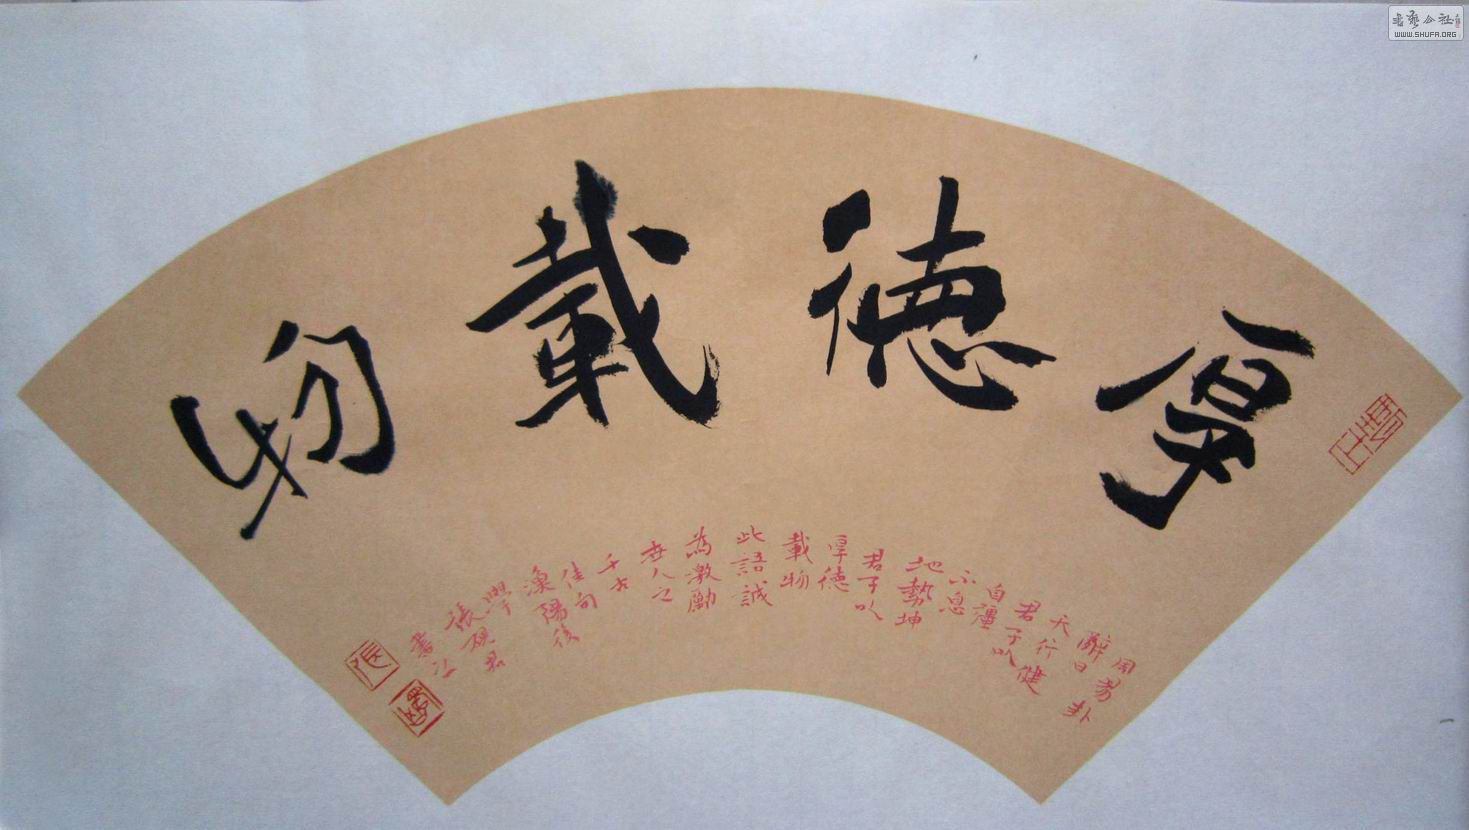 厚德載物
周易卦
辭曰
天行健
君子以
自彊
不息
地勢坤
君子以
厚德
載物
此語誠
為激勵
世人之
千古
佳句
漁陽後
學
張硯君
書
書藝公社
WWW.SHUFA.ORG